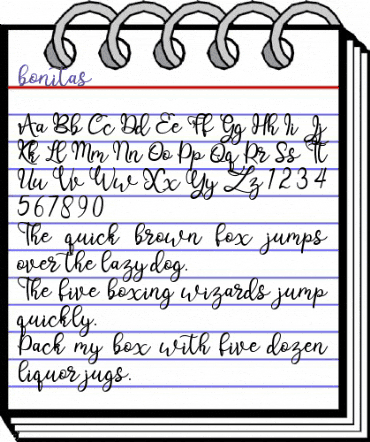 bonitas
Aa Bb Cc Dd Ee Ff Gg Hh Ii Jj
Kk Ll Mm Nn Oo Pp Qq Rr Ss Tt
Uu Vv Ww Xx Yy Zz 1 2 3 4
5 6 7 8 9 0
The quick brown fox jumps
over the lazy dog.
The five boxing wizards jump
quickly.
Pack my box with five dozen
liquor jugs.